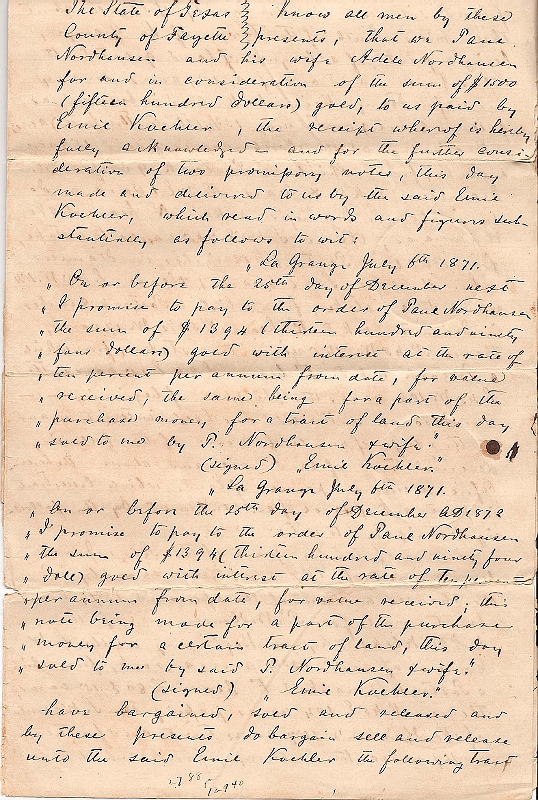 The State of Texas } Know all men by these
County of Fayette } presents, that we Paul
Nordhausen and his wife Adele Nordhausen
for and in consideration of the sum of $1500
(fifteen hundred dollars) gold, to us paid by
Emil Koehler, the receipt whereof is hereby
fully acknowledged and for the further consi-
deration of two promissory notes, this day
made and delivered to us by the said Emil
Koehler, which read in words and figures sub-
stantially as follows to wit:
„ La Grange July 6th 1871.
„ On or before the 25th day of December next
„ I promise to pay to the order of Paul Nordhausen
„ the sum of $1394 (thirteen hundred and ninety
„ four dollars) gold with interest at the rate of
„ ten percent per annum from date, for value
„ received, the same being for a part of the
„ purchase money for a tract of land this day
„ sold to me by P. Nordhausen & wife."
(signed) „Emil Koehler."
„ La Grange July 6th 1871.
„ On or before the 25th day of December AD 1872
„ I promise to pay to the order of Paul Nordhausen
„ the sum of $1394 (thirteen hundred and ninety four
„ dolls) gold with interest at the rate of ten percent
„ per annum from date, for value received; this
„ note being made for a part of the purchase
„ money for a certain tract of land, this day
„ sold to me by said P. Nordhausen & wife."
(signed) „Emil Koehler."
have bargained, sold and released and
by these presents do bargain sell and release
unto the said Emil Koehler the following tract